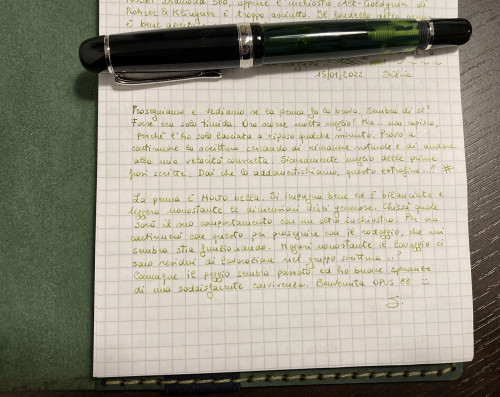 Diamond 580, oppure e inchiostro Alt-Goldgrün di
Rohrer & Klingner è troppo asciutto. Se
è bene
15/01/2022 Silvia
Proseguiamo e vediamo se la penna fa la brava. Sembra di sì!
Forse era solo timida. Ora scrive molto meglio! Ma non capisco,
perché l'ho solo lasciata a riposo qualche minuto. Provo a
continuare la scrittura cercando di rimanere naturale e di andare
alla mia velocità consueta. Sicuramente meglio delle prime
frasi scritte. Dai che la addomestichiamo, questa
La penna è molto bella. Si impugna bene ed è bilanciata e
leggera nonostante le dimensioni generose. Chissà quale
sarà il suo comportamento con un altro inchiostro. Per ora
continuerò con questo per proseguire con il rodaggio, che mi
sembra stia funzionando. Magari nonostante il lavaggio ci
sono residui di lavorazione nel gruppo scrittura ...?
Comunque il peggio sembra passato ed ho buone speranze
di una soddisfacente convivenza. Benvenuta OPUS 88
S.